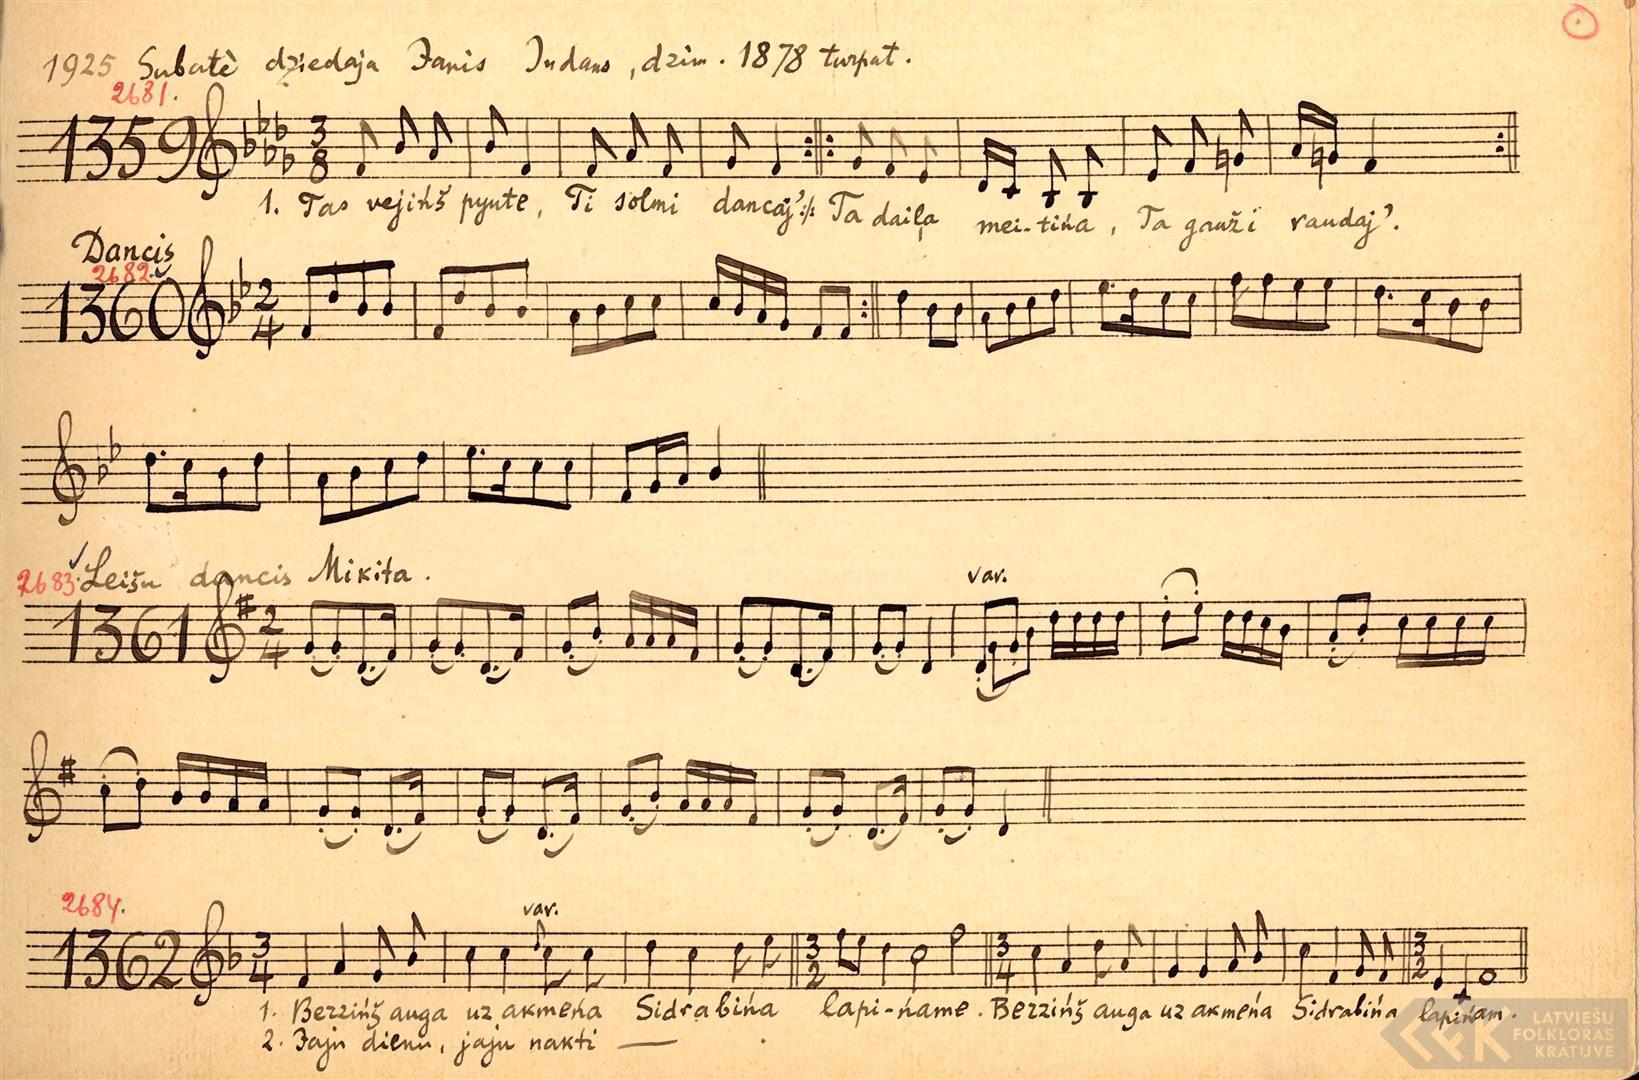 1925 Subatē dziedaja Janis Indans, dzim. 1878 turpat.
2681.
1359
3
8
1. Tas vejińš pyute, Ti solmi dancaj’:/: Ta daiļa mei-tińa, Ta gauži raudaj’.
Dancis
2682.
1360
2
4
2683. Leišu dancis Mikita.
var.
1361
2
4
2684.
var.
1362
3
4
3
2
3
4
3
2
1. Berzińš auga uz akmeńa Sidrabińa lapi-ńame. Berzińš auga uz akmeńa Sidrabińa lapińam.
2. Jaju dienu, jaju nakti —
LATVIEŠU
FOLKLORAS
KRĀTUVE